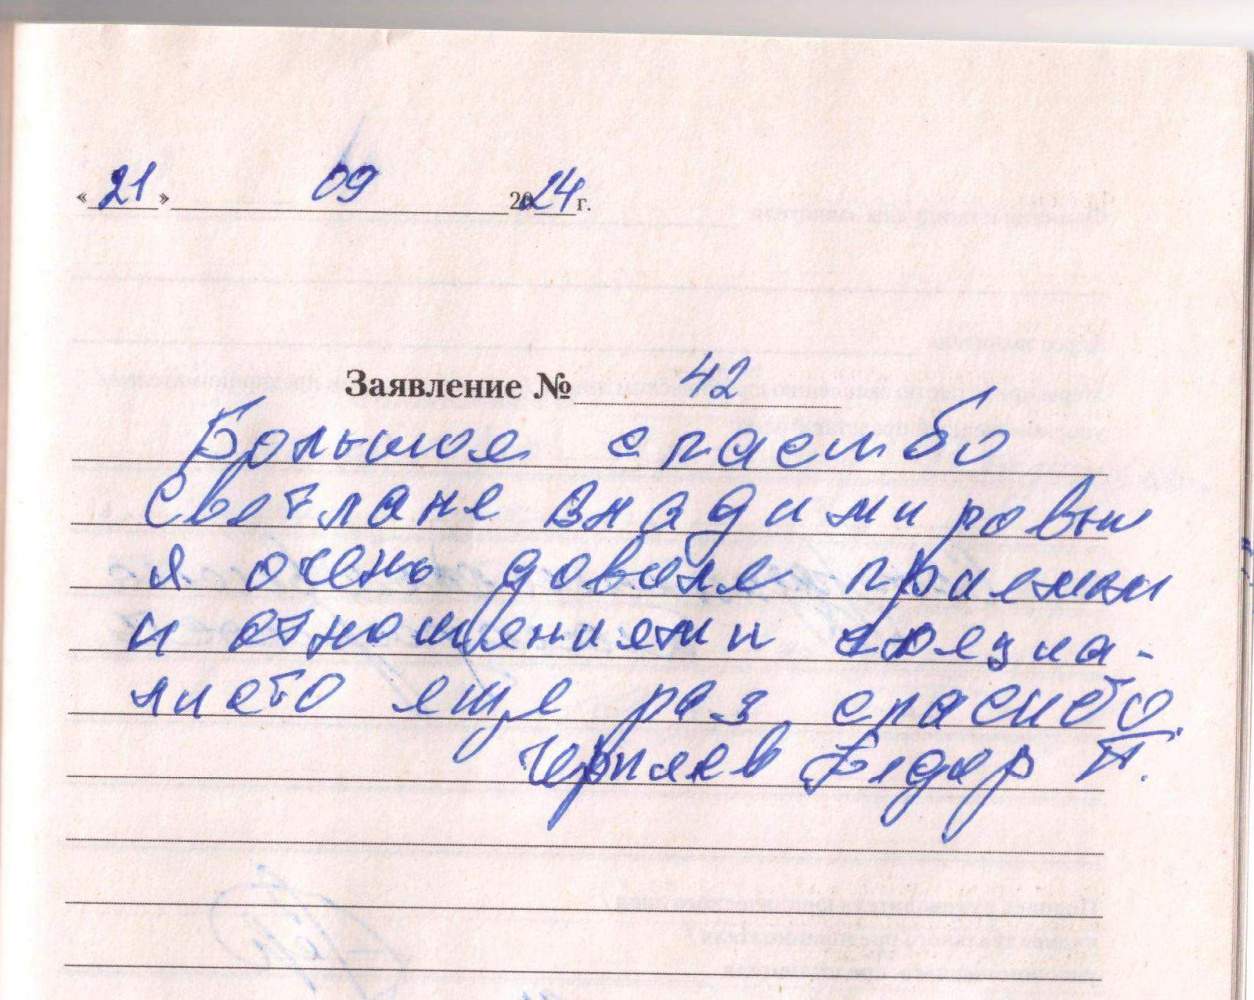 «21» 09 2024 г.
Заявление № 42
Большое спасибо
Светлане Владимировны
я очень довален приемом
и отношением специа-
листо еще раз спасибо.
Черняев Федор П.